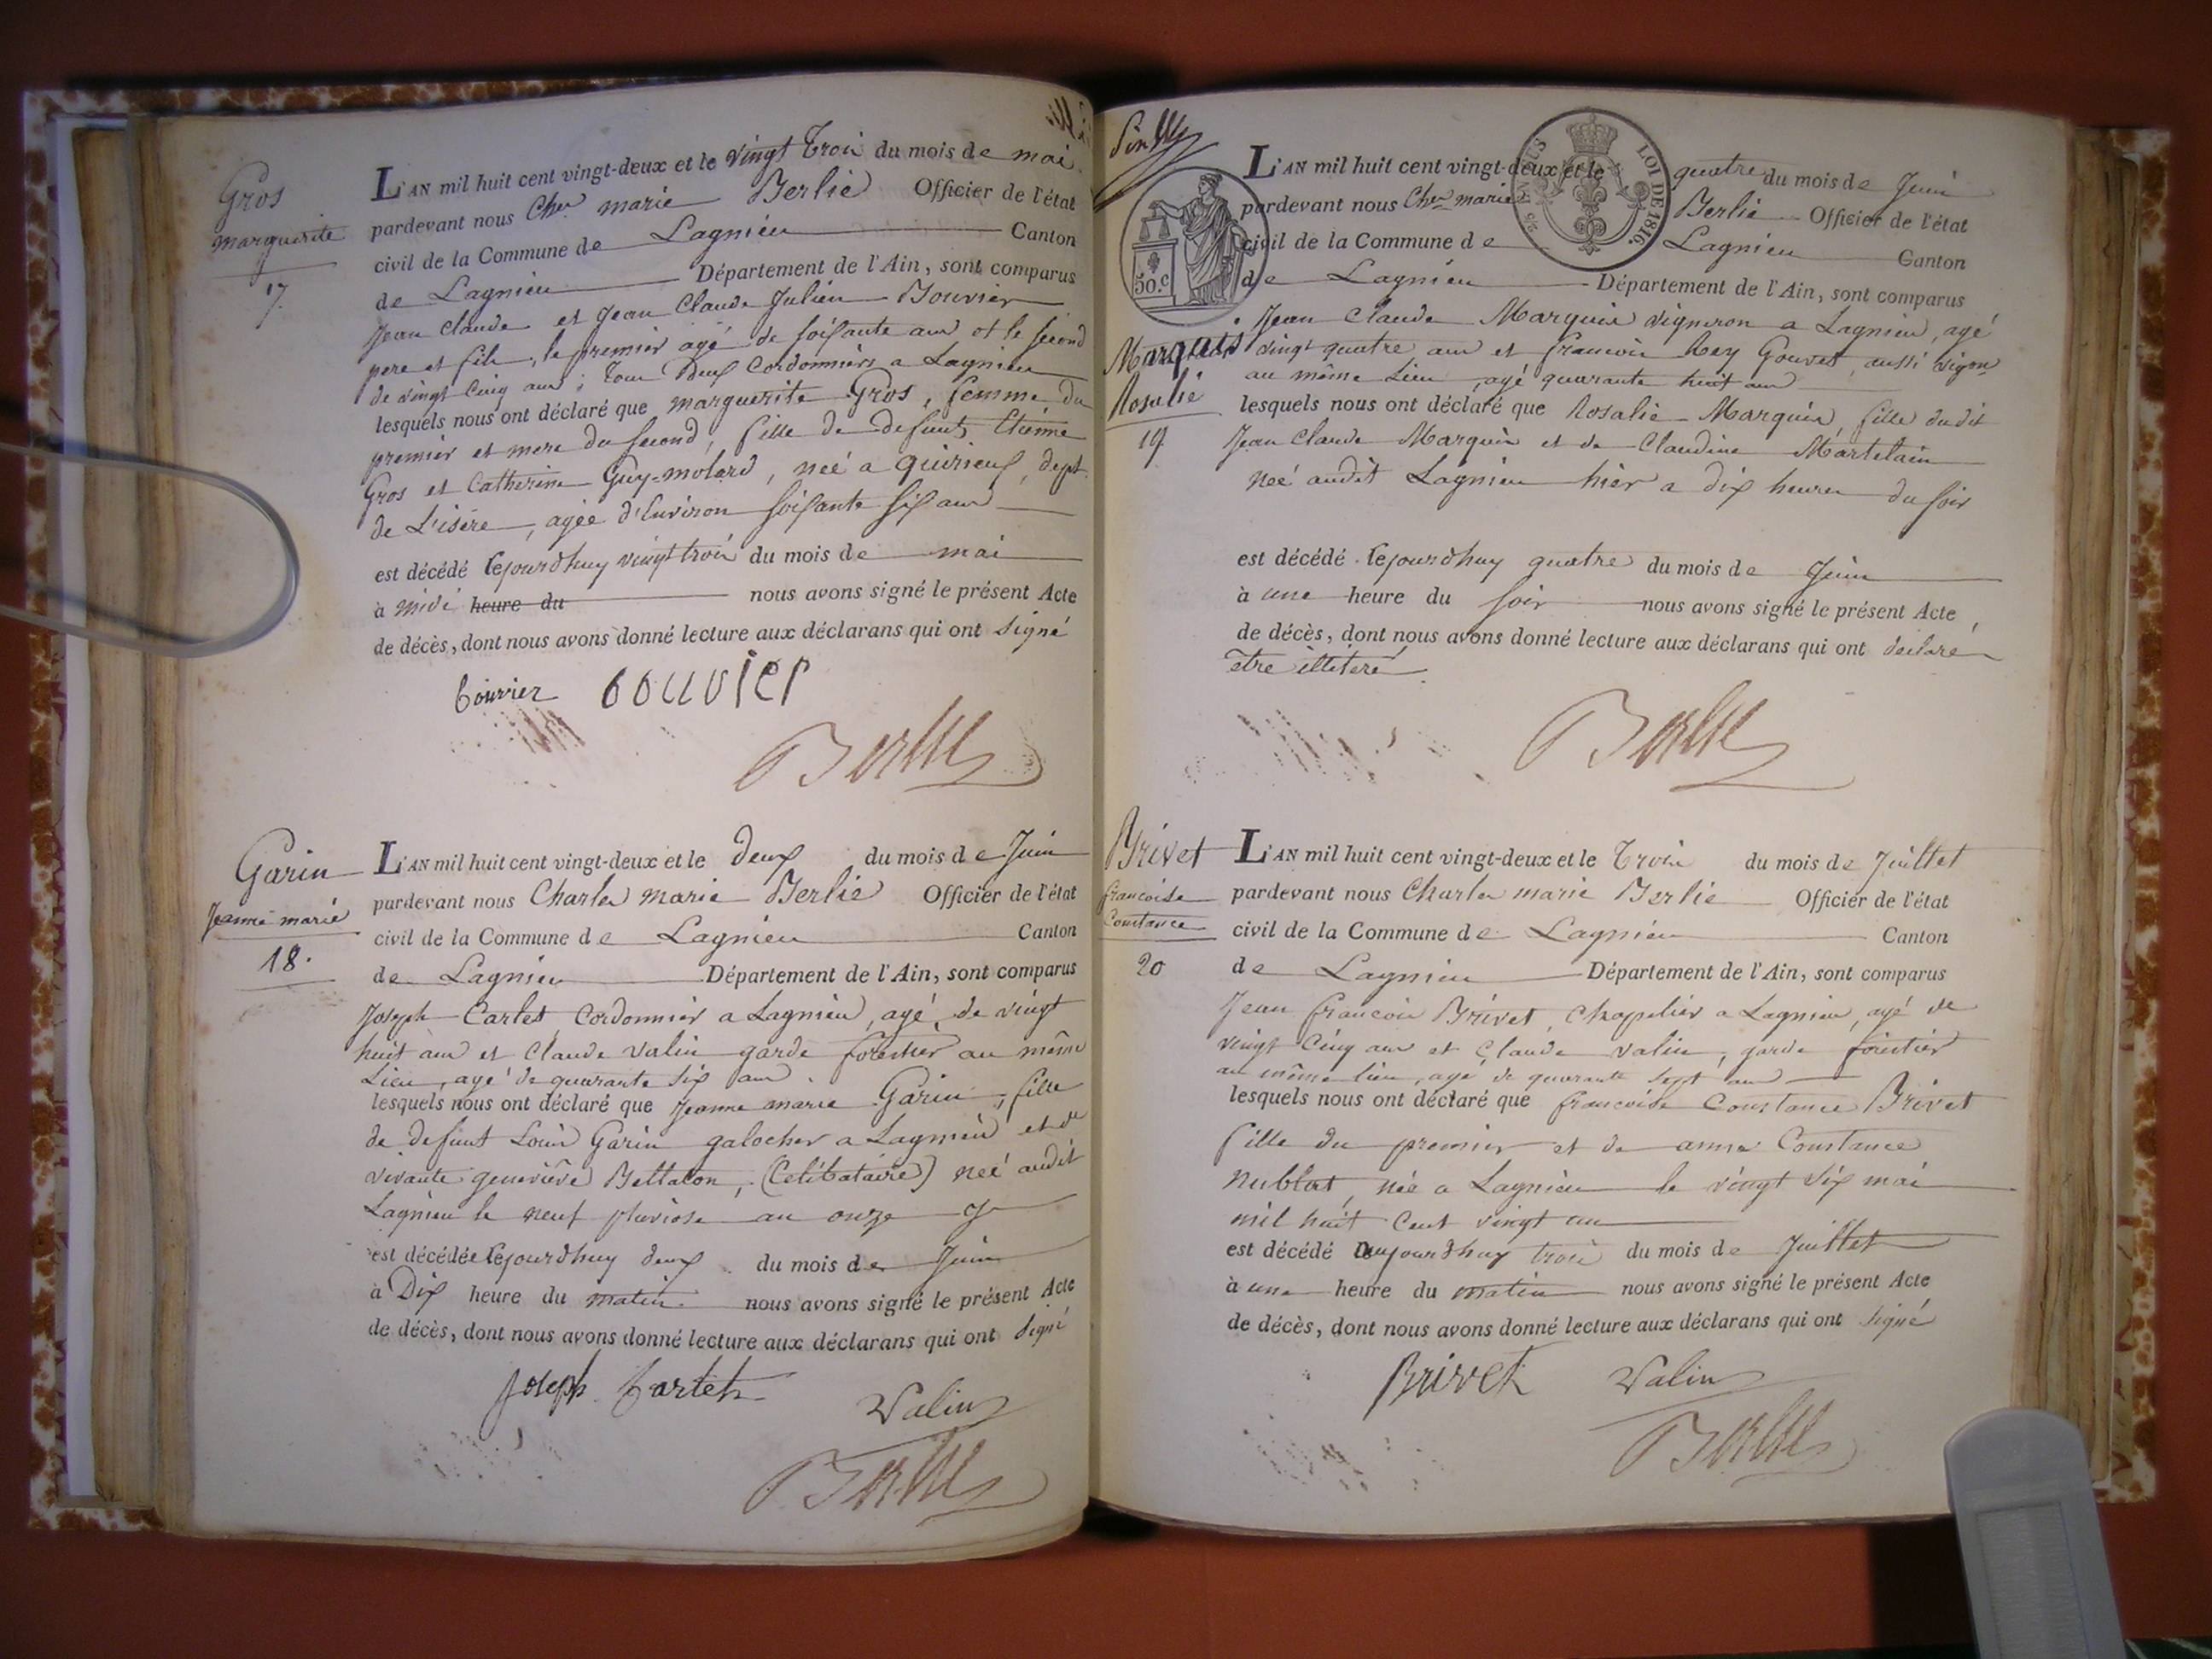 Gros
marguerite
17.
L'AN mil huit cent vingt-deux et le vingt trois du mois de mai
pardevant nous Cher marie Berlie Officier de l'état
civil de la Commune de Lagnieu Canton
de Lagnieu Département de l'Ain, sont comparus
Jean Claude et Jean Claude Julien Bouvier
pere et fils, le premier agé de soixante ans et le second
de vingt cinq ans, tous deux Cordonniers a Lagnieu
lesquels nous ont déclaré que marguerite Gros, femme du
premier et mere du second, fille de defunts Etienne
Gros et Catherine Guy-molard, neé a quirieux, dept.
de L'isére, agée d'Environ soixante six ans
est décédé cejourdhuy vingt trois du mois de mai
à midi heure du nous avons signé le présent Acte
de décès, dont nous avons donné lecture aux déclarans qui ont signé
bouvier bouvier
Berlie
Garin
Jeanne marie
18.
L'AN mil huit cent vingt-deux et le deux du mois de Juin
pardevant nous Charles marie Berlie Officier de l'état
civil de la Commune de Lagnieu Canton
de Lagnieu Département de l'Ain, sont comparus
Joseph Cartet Cordonnier a Lagnieu, agé de vingt
huit ans et Claude valin garde forestier au même
Lieu, agé de quarante six ans.
lesquels nous ont déclaré que Jeanne marie Garin, fille
de defunt Louis Garin galocher a Lagnieu et de
vivante geneviêve Bellaton, (Celibataire) neé audit
Lagnieu le neuf pluviose an onze
est décédée cejourdhuy deux du mois de Juin
à Dix heure du matin nous avons signé le présent Acte
de décès, dont nous avons donné lecture aux déclarans qui ont signé
Joseph Cartet
Valin
Berlie
LOI DE 1816.
50.C
Marquis
Rosalie
19
L'AN mil huit cent vingt-deux et le quatre du mois de Juin
pardevant nous Cher marie Berlie Officier de l'état
civil de la Commune de Lagnieu Canton
de Lagnieu Département de l'Ain, sont comparus
Jean Claude Marquis vigneron a Lagnieu, agé
vingt quatre ans et francois Rey Gouvet, aussi vigon
au même Lieu, agé quarante huit ans
lesquels nous ont déclaré que Rosalie Marquis, fille dudit
Jean Claude Marquis et de Claudine Martelain
neé audit Lagnieu hier a dix heures du soir
est décédé cejourdhuy quatre du mois de Juin
à une heure du soir nous avons signé le présent Acte
de décès, dont nous avons donné lecture aux déclarans qui ont declaré
etre illiteré
Berlie
Brivet
francoise
Constance
20
L'AN mil huit cent vingt-deux et le trois du mois de Juillet
pardevant nous Charles marie Berlie Officier de l'état
civil de la Commune de Lagnieu Canton
de Lagnieu Département de l'Ain, sont comparus
Jean francois Brivet, Chapelier a Lagnieu, agé de
vingt Cinq ans et Claude valin, garde forestier
au même lieu, agé de quarante sept ans
lesquels nous ont déclaré que francoise Constance Brivet
fille du premier et de anne Constance
Nublat, née a Lagnieu le vingt six mai
mil huit Cent vingt un
est décédé aujourdhuy trois du mois de Juillet
à une heure du matin nous avons signé le présent Acte
de décès, dont nous avons donné lecture aux déclarans qui ont signé
Brivet Valin
Berlie